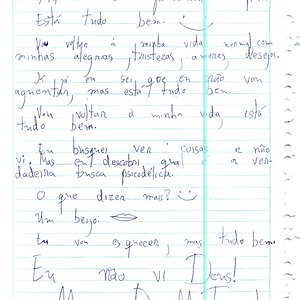 Está tudo bem.
Vou voltar à minha vida normal com
minhas alegrias, tristezas, amores, desejos.
E já eu sei que eu não vou
aguentar, mas está tudo bem.
Vou voltar à minha vida, está
tudo bem.
Eu busquei ver coisas e não
vi. Mas eu descobri qual é a ver-
dadeira busca psicodélica.
O que dizer mais?
Um beijo.
Eu vou esquecer, mas tudo bem.
Eu não vi Deus!